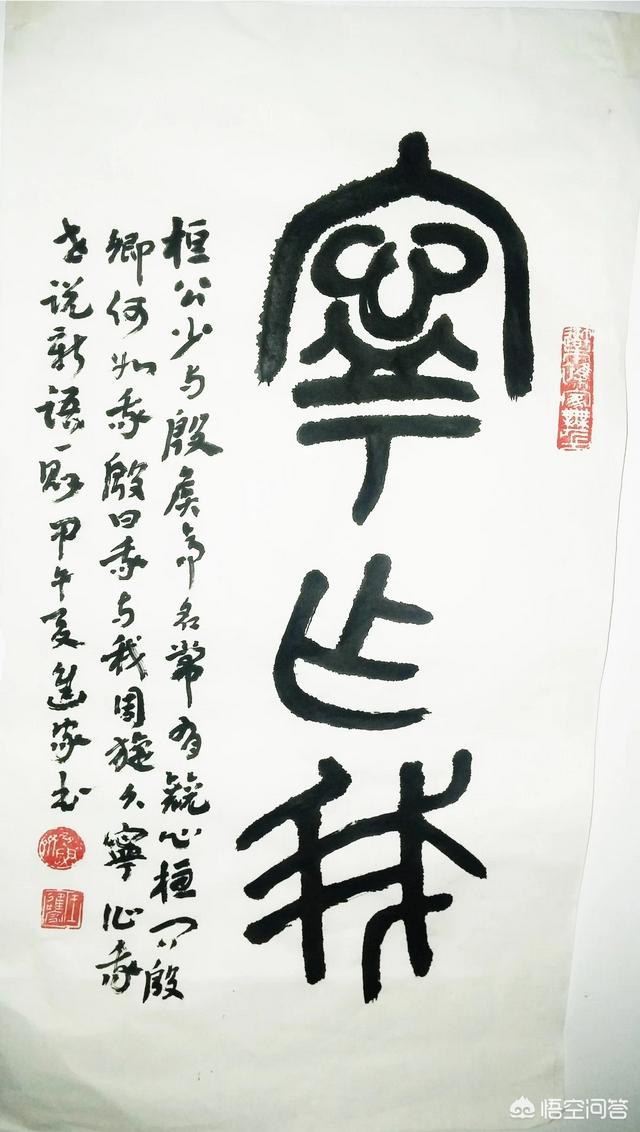 寧作我
桓公少与殷侯齐名常有競心桓问殷
卿何如我殷曰我与我周旋久寧作我
世说新语一则甲午夏進家书
悟空问答